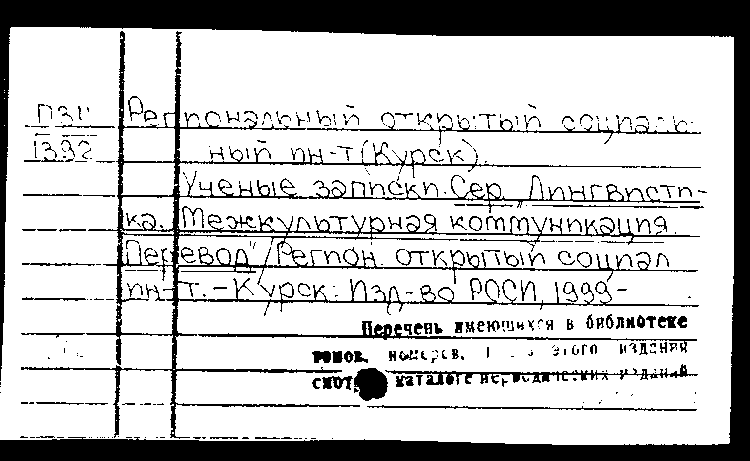 П31 Региональный открытый социаль-
1392 ный ин-т (Курск).
Ученые записки. Сер. „Лингвисти-
ка. Межкультурная коммуникация.
Перевод" / Регион. открытый социал.
ин-т. - Курск: Изд-во РОСИ, 1999 -
Перечень имеющихся в библиотеке
томов, номеров, этого издания
смотр каталоге периодических изданий